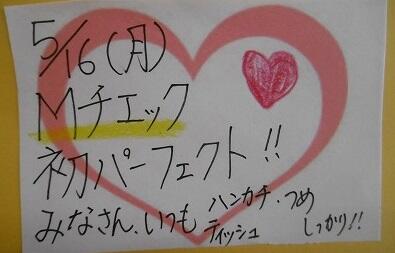 5/16(月)
Mチェック
初パーフェクト!!
みなさん、いつも ハンカチ・つめ
ティッシュ しっかり!!